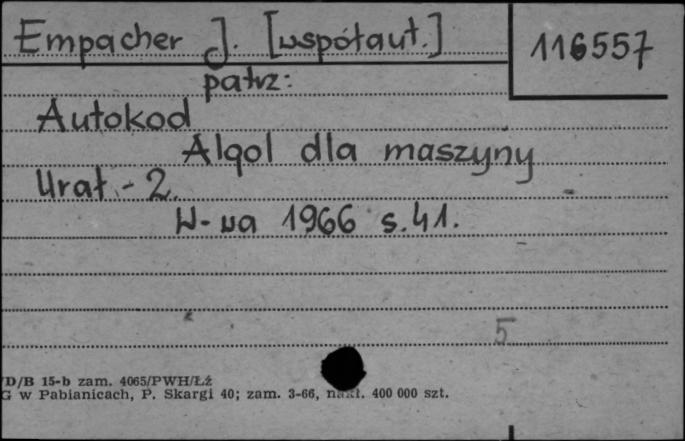 Empacher J. [współaut.]
116557
patrz:
Autokod
Algol dla maszyny
Urał - 2.
W-wa 1966 s. 41.
5
D/B 15-b zam. 4065/PWH/Łź
G w Pabianicach, P. Skargi 40; zam. 3-66, nakł. 400 000 szt.